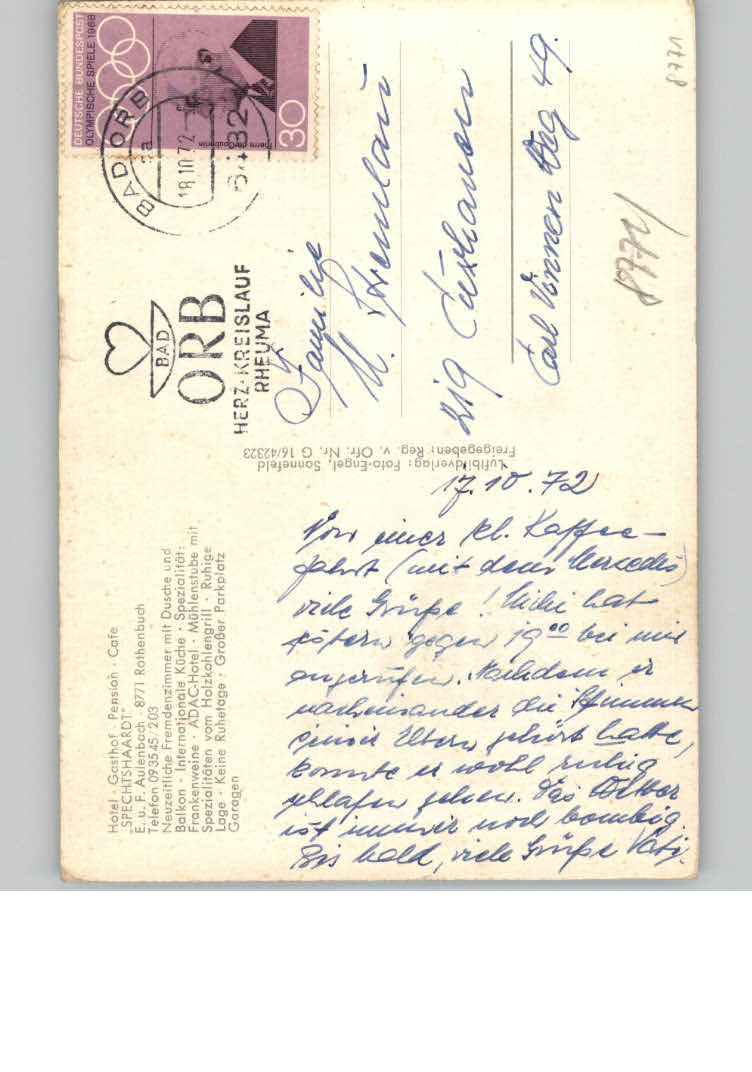 Hotel · Gasthof · Pension · Cafe
„SPECHTSHAARDT"
E. u. F. Aulenbach · 8771 Rothenbuch
Telefon 0935 45/ 203
Neuzeitliche Fremdenzimmer mit Dusche und
Balkon · Internationale Küche · Spezialität:
Frankenweine · ADAC-Hotel · Mühlenstube mit
Spezialitäten vom Holzkohlengrill · Ruhige
Lage · Keine Ruhetage · Großer Parkplatz
Garagen
17.10.72
Von einer kl. Kaffee-
fahrt (mit dem Mercedes)
viele Grüße! hat
gestern gegen 19⁰⁰ bei mir
angerufen. Nachdem er
nacheinander die Stimmen
seiner Eltern gehört hatte,
konnte er wohl ruhig
schlafen gehen. Das Wetter
ist immer noch bombig.
Bis bald, viele Grüße Vati.
Luftbildverlag: Foto-Engel, Sonnefeld
Freigegeben: Reg. v. Ofr. Nr. G 16/42323
DEUTSCHE BUNDESPOST
OLYMPISCHE SPIELE 1968
Pierre de Coubertin
30
BAD ORB
18.10.72
6482
BAD
ORB
HERZ·KREISLAUF
RHEUMA
Familie
219 Cuxhaven
Carl Vinnen Weg 49.
8771
8771